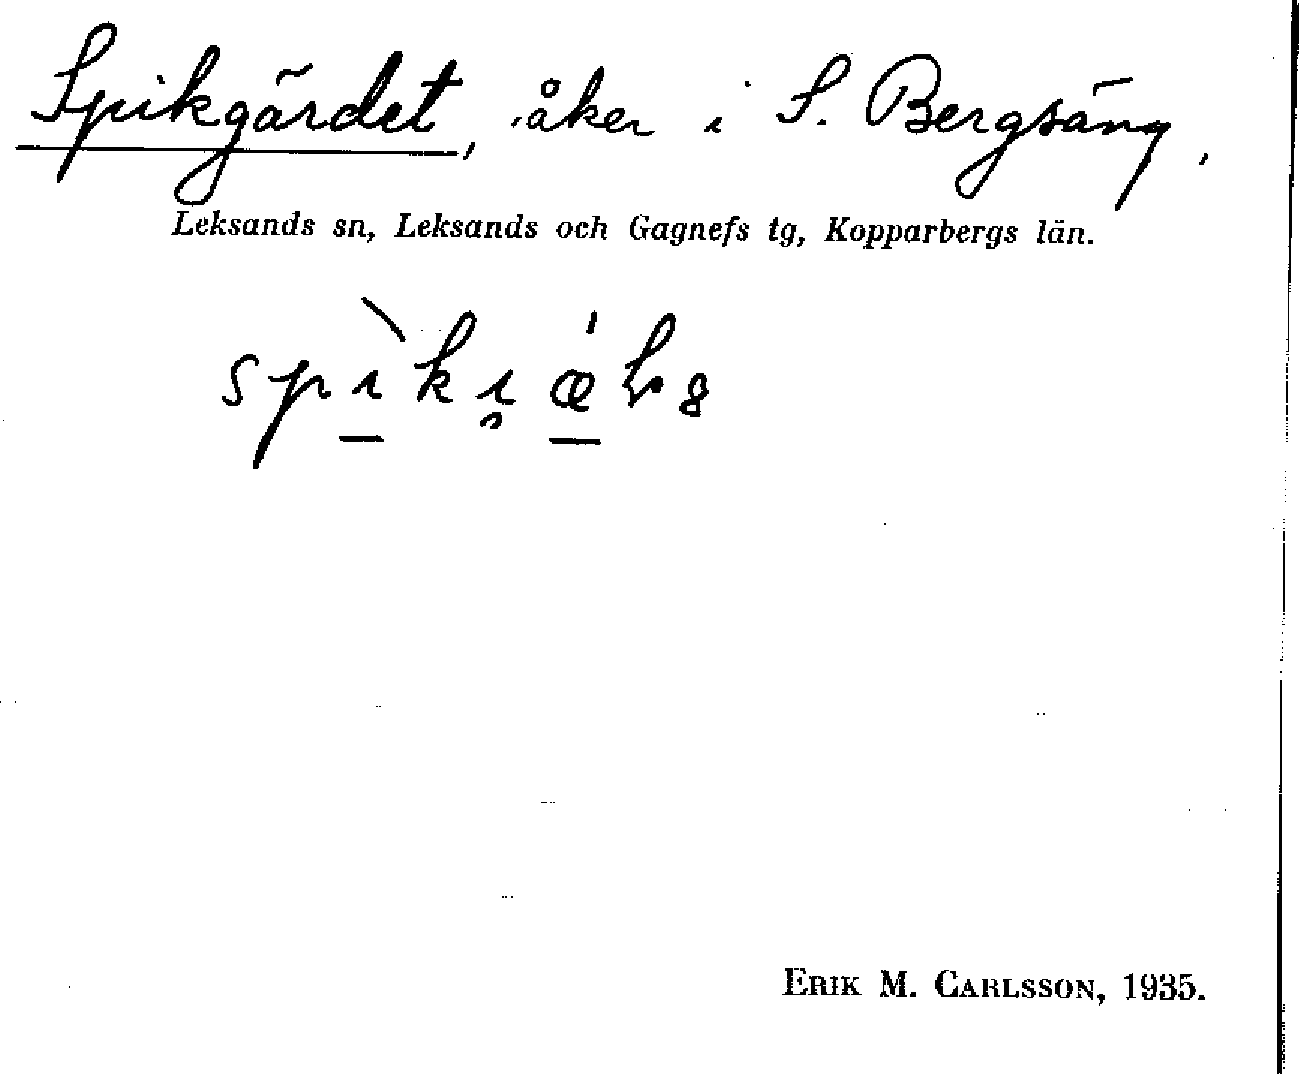 Spikgärdet, åker i S. Bergsäng,
Leksands sn, Leksands och Gagnefs tg, Kopparbergs län.
ERIK M. CARLSSON, 1935.